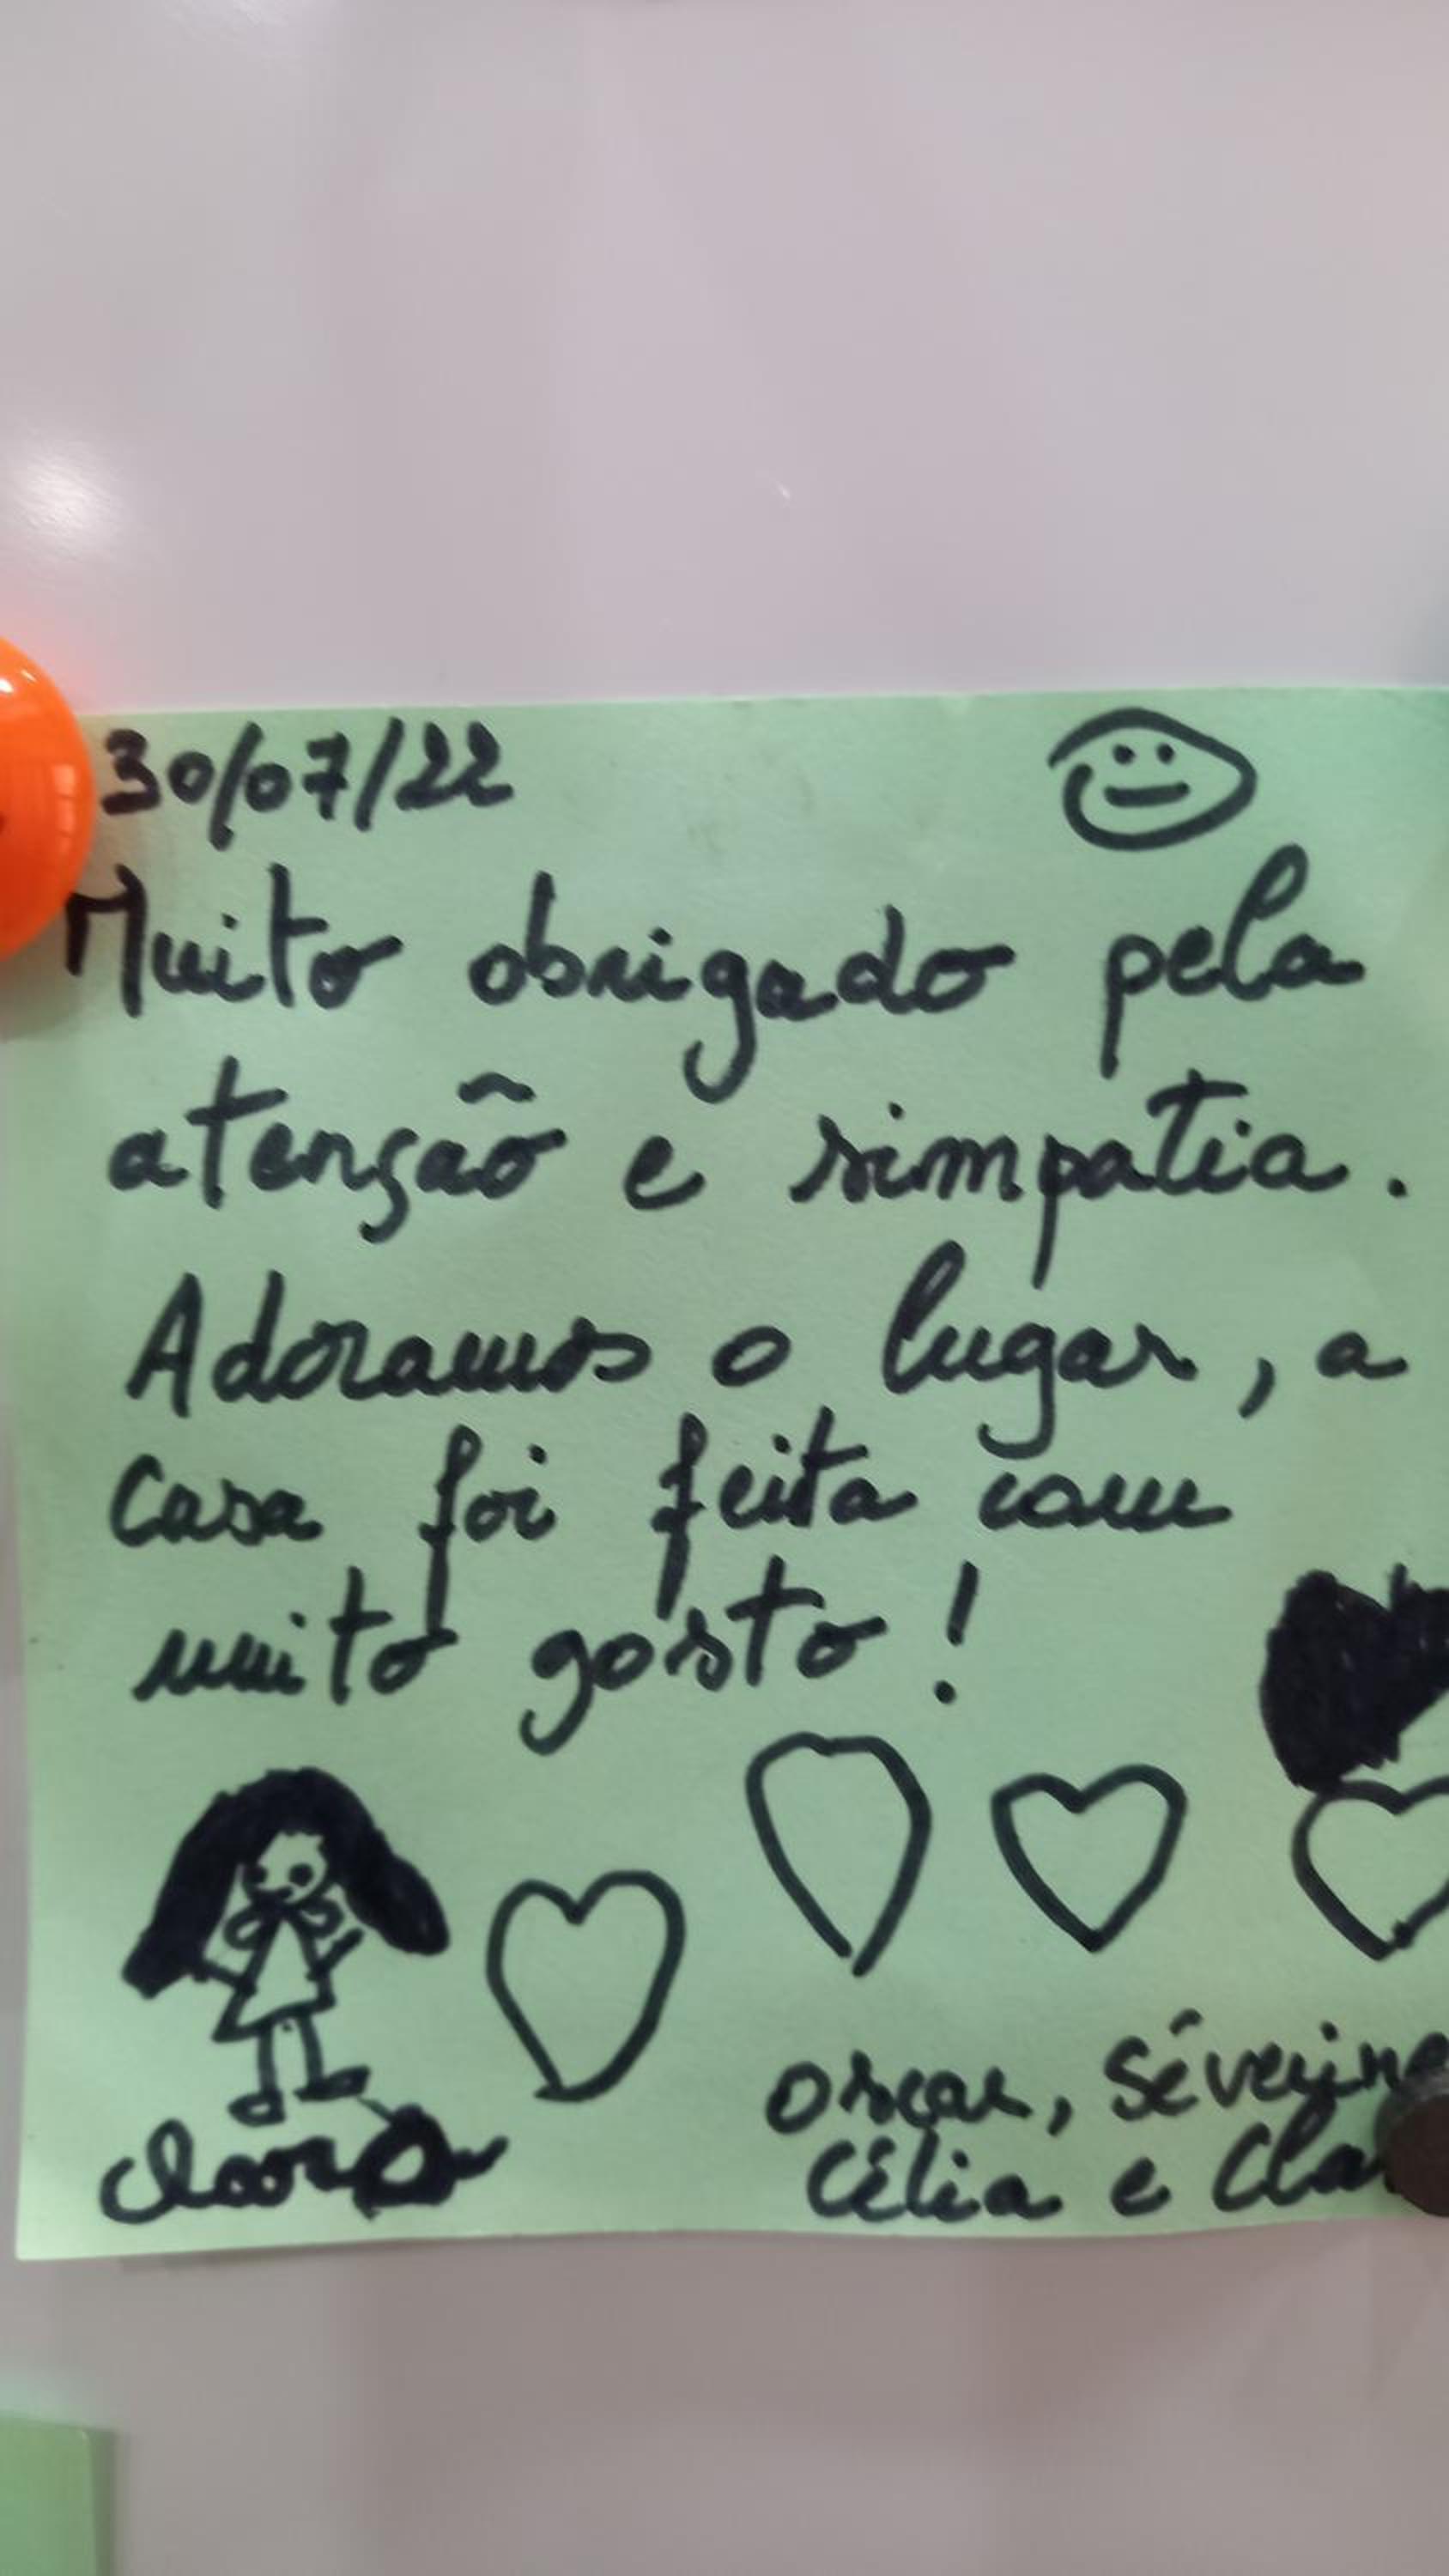 30/07/22
Muito obrigado pela
atenção e simpatia.
Adoramos o lugar, a
casa foi feita com
muito gosto!
Oscar, Séverine
Célia e Cla
Clara